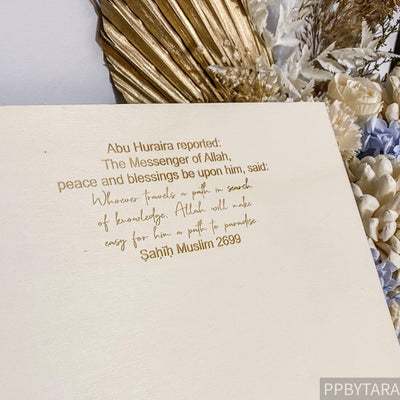 Abu Huraira reported:
The Messenger of Allah,
peace and blessings be upon him, said:
Whoever travels a path in search
of knowledge, Allah will make
easy for him a path to paradise.
Ṣaḥīḥ Muslim 2699
PPBYTARA